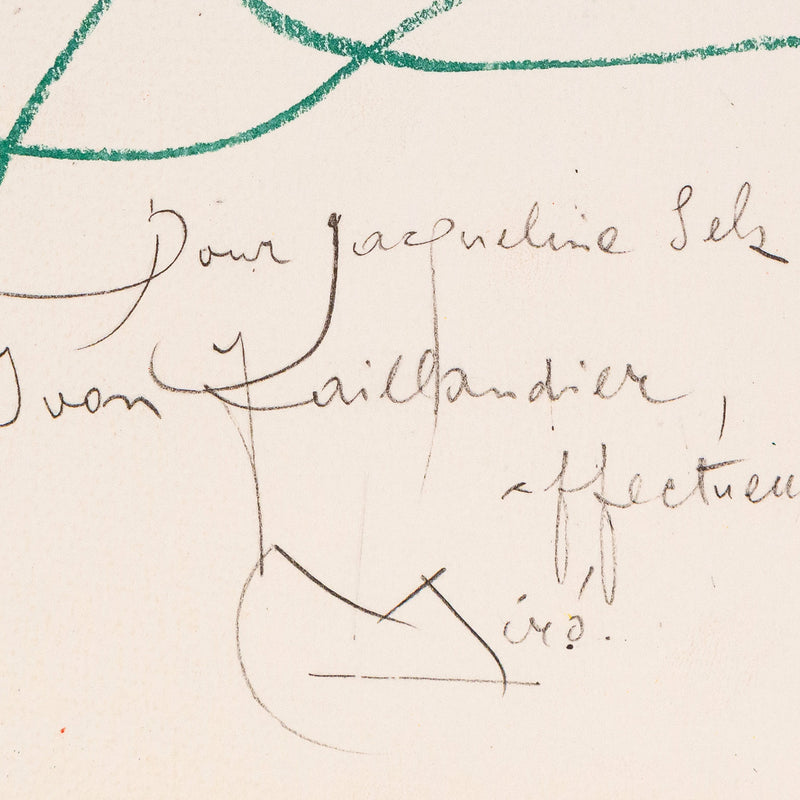 Pour Jacqueline Selz
Yvon Taillandier,
affectueu
Miró.